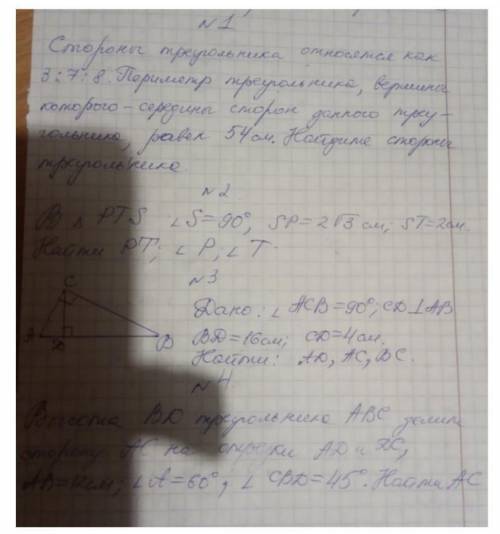 №1
Стороны треугольника относятся как
3:7:8. Периметр треугольника, вершины
которого – середины сторон данного треу-
гольника, равен 54 см. Найдите стороны
треугольника
№2
В △ PTS ∠S=90°, SP=2√3 см; ST=2см.
Найти PT; ∠P; ∠T.
№3
C
Дано: ∠ACB=90°; CD⊥AB
A D B
BD=16см; CD=4см.
Найти: AD, AC, BC.
№4
Высота BD треугольника ABC делит
сторону AC на отрезки AD и DC,
AB=12см; ∠A=60°, ∠CBD=45°. Найти AC